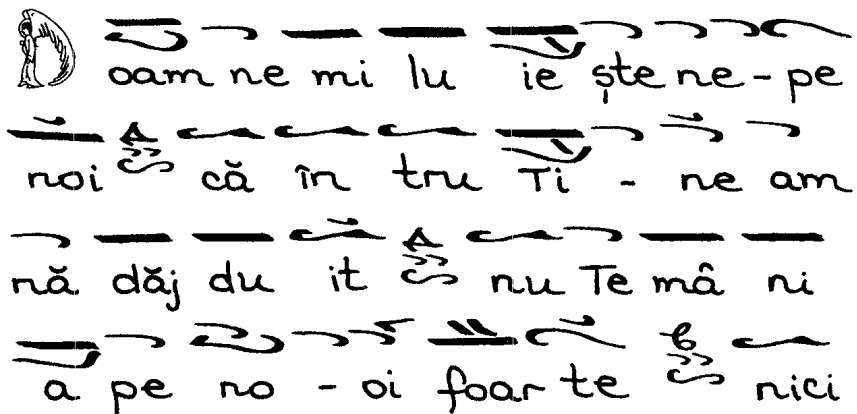 Doam ne mi lu ie ște ne - pe
noi că în tru Ti - ne am
nă dăj du it nu Te mâ ni
a pe no - oi foar te nici